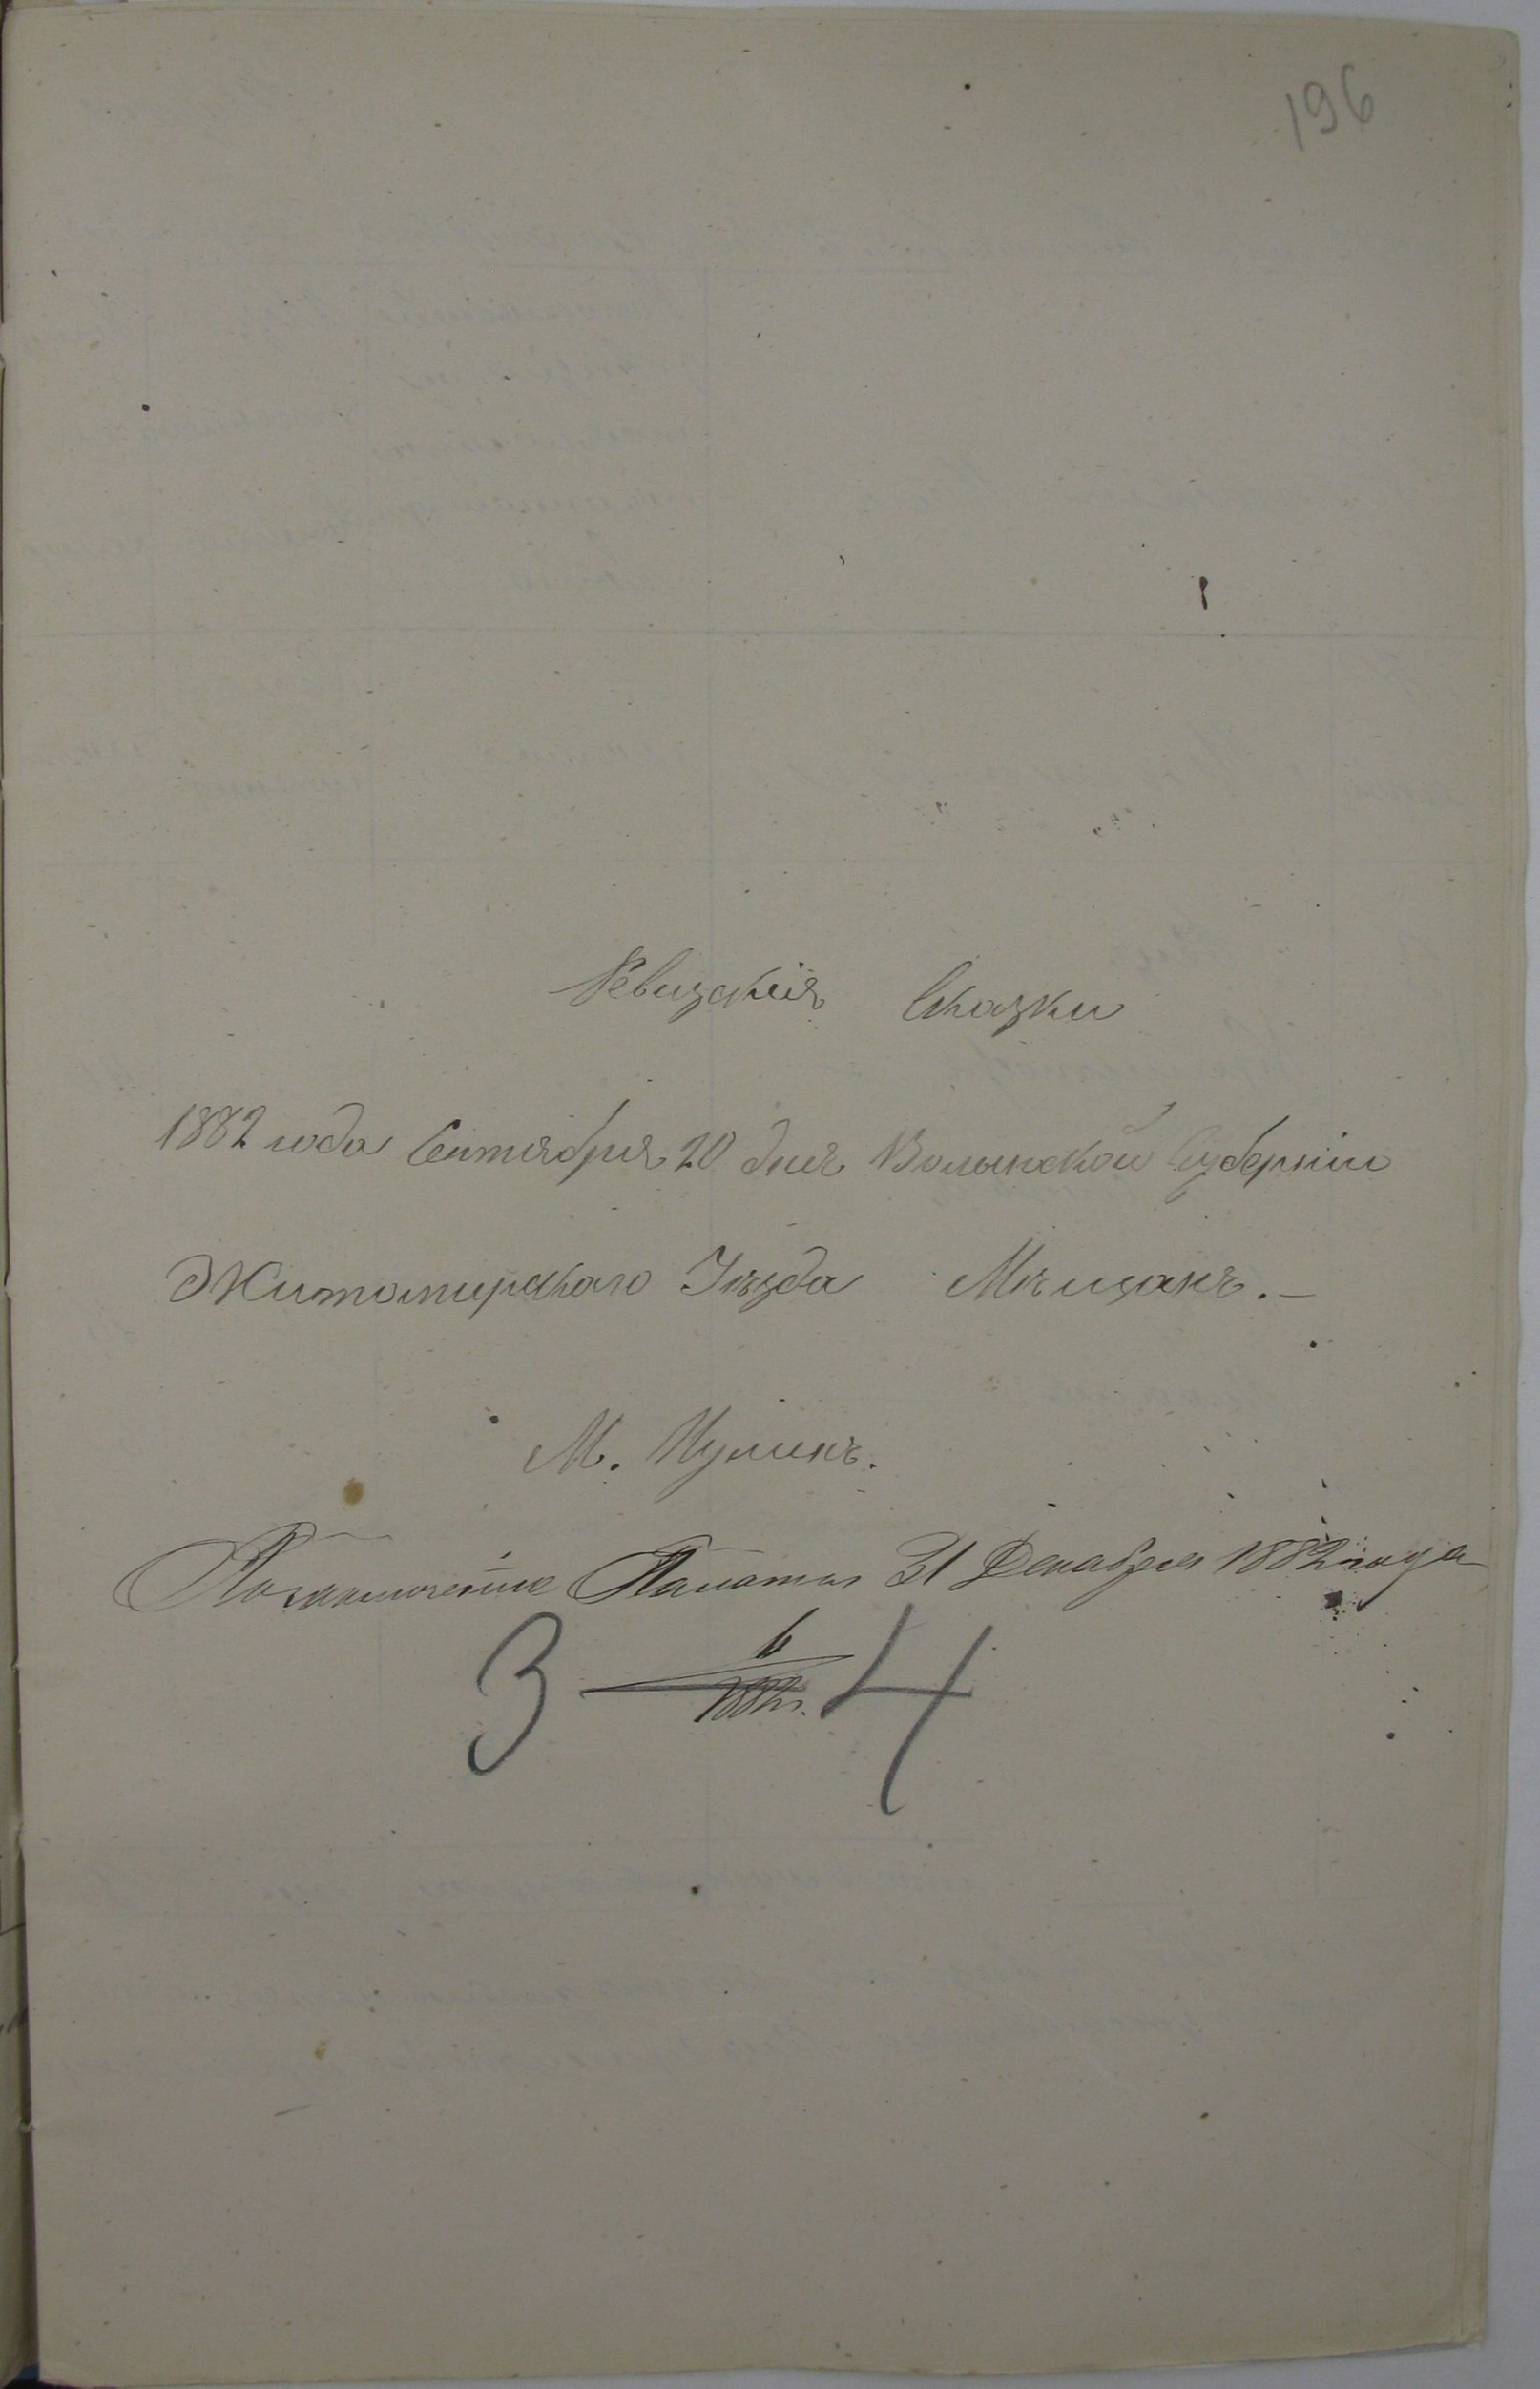 196
Ревизскія Сказки
1882 года Сентября 20 дня Волынской Губерніи
Житомирскаго Уѣзда Мѣщанъ.—
М. Пулинъ.
Палаты 31 Декабря 1882 года
3 — 6/1882 г. 4